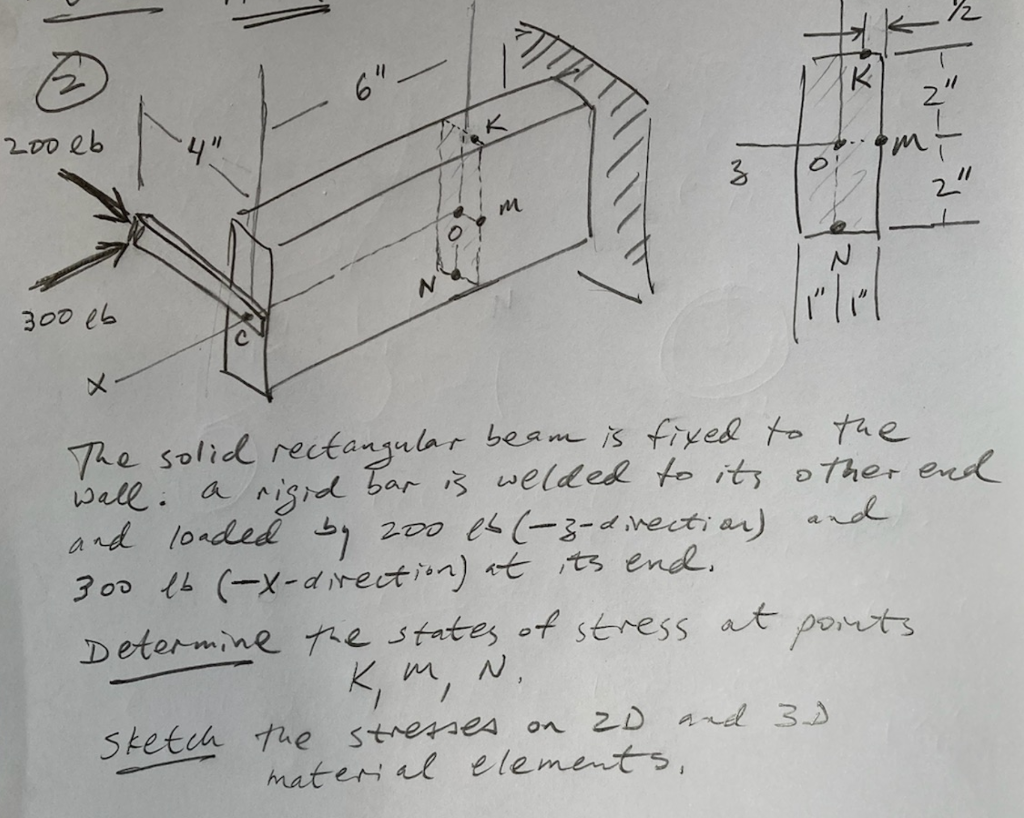 2
200 lb
4"
6"
K
M
O
N
300 lb
C
X
1/2
K
2"
3
O
M
2"
N
1" 1"
The solid rectangular beam is fixed to the
wall. a rigid bar is welded to its other end
and loaded by 200 lb (-z-direction) and
300 lb (-x-direction) at its end.
Determine the states of stress at points
K, M, N.
Sketch the stresses on 2D and 3D
material elements.